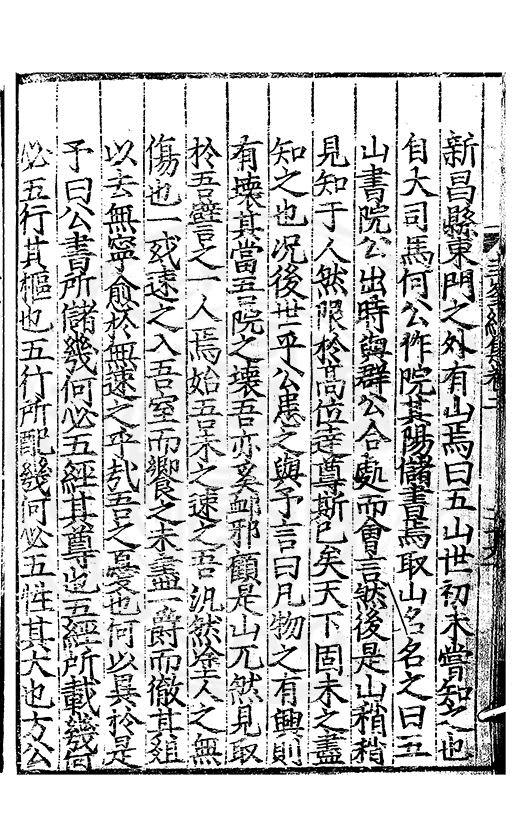 新昌縣東門之外有山焉曰五山世初未嘗知之也
自大司馬何公作院其陽儲書焉取山名名之曰五
山書院公出時與群公合處而會言然後是山稍稍
見知于人然限於高位達尊斯已矣天下固未之盡
知之也况後世乎公愚之與予言曰凡物之有興則
有壞其當吾院之壞吾亦奚卹邪顧是山兀然見取
於吾譬言之一人焉始吾未之速之吾汎然塗人之無
傷也一或速之入吾室而饗之未盡一爵而徹其俎
以去無寧愈於無速之乎哉吾之憂也何以異於是
予曰公書所儲幾何必五經其尊也五經所載幾何
必五行其樞也五行所配幾何必五性其大也方公